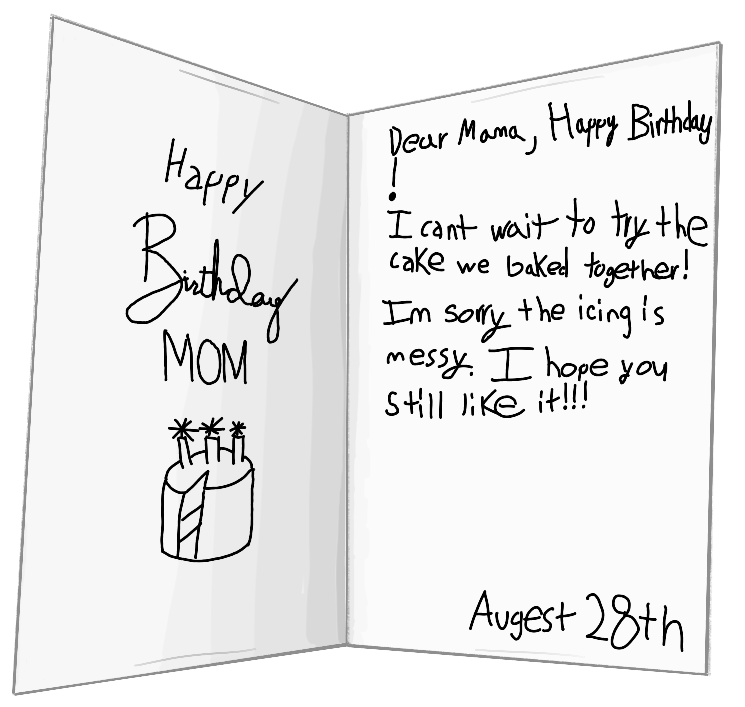 Happy
Birthday
MOM
Dear Mama, Happy Birthday
!
I cant wait to try the
cake we baked together!
Im sorry the icing is
messy. I hope you
still like it!!!
Augest 28th